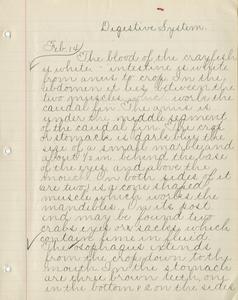 Digestive System.
Feb. 14
The blood of the crayfish
is white - intestine is white
from anus to crop. In the
abdomen it lies between the
two muscles which work the
caudal fin. The anus is
under the middle segment
of the caudal fin. The crop
or stomach is dark blue the
size of a small marble and
about 1/2 in. behind the base
of the eyes and above the
mouth. On both sides of it
are two cone shaped
muscles which works the
mandibles. In its post
end may be found two
crabs eyes or sacks which
contain lime in fluid.
The esophagus extends
from the crop down to the
mouth. In the stomach
are three brown teeth, one
in the bottom & 2 on the sides